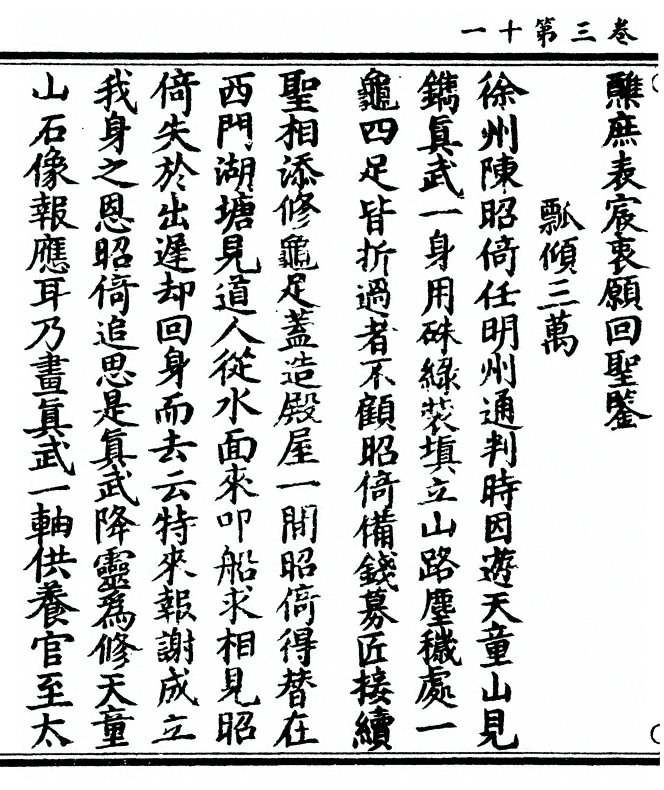 一十第三卷
醮庶表宸衷願回聖鑒
瓢傾三萬
徐州陳昭倚任明州通判時因遊天童山見
鐫眞武一身用硃綠裝填立山路塵穢處一
龜四足皆折過者不顧昭倚備錢募匠接續
聖相添修龜足蓋造殿屋一間昭倚得替在
西門湖塘見道人從水面來叩船求相見昭
倚失於出遲却回身而去云特來報謝成立
我身之恩昭倚追思是眞武降靈爲修天童
山石像報應耳乃畫眞武一軸供養官至太